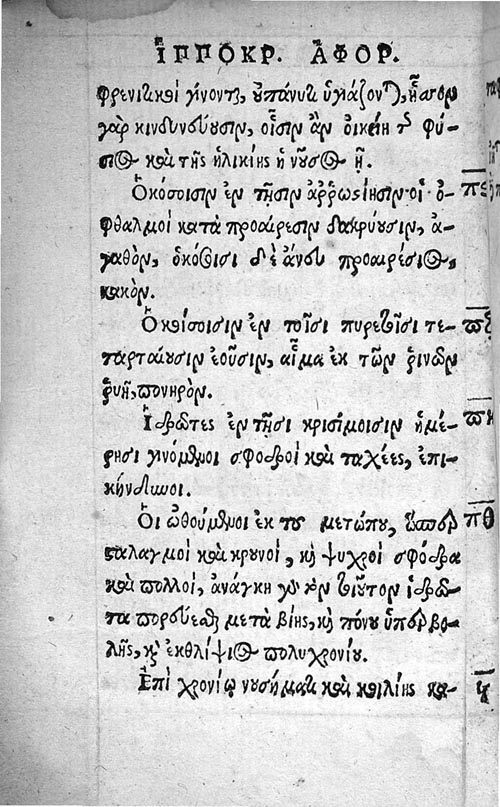 ἹΠΠΟΚΡ. ἈΦΟΡ.
φρενιτικοὶ γίνονται, οὐ πάνυ τι ὑγιάζονται, ἧσσον
γὰρ κινδυνεύουσιν, οἷσιν ἂν οἰκείη τῆς φύ-
σιος καὶ τῆς ἡλικίης ἡ νοῦσος ᾖ.
Ὁκόσοισιν ἐν τῇσιν ἀῤῥωστίησιν οἱ ὀ-
φθαλμοὶ κατὰ προαίρεσιν δακρύουσιν, ἀ-
γαθὸν, ὁκόσοισι δὲ ἄνευ προαιρέσιος,
κακόν.
Ὁκόσοισιν ἐν τοῖσι πυρετοῖσι τε-
ταρταίοισιν ἐοῦσιν, αἷμα ἐκ τῶν ῥινῶν
ῥυῇ, πονηρόν.
Ἱδρῶτες ἐν τῇσι κρισίμοισιν ἡμέ-
ρῃσι γινόμενοι σφοδροὶ καὶ ταχέες, ἐπι-
κίνδυνοι.
Οἱ ὠθούμενοι ἐκ τοῦ μετώπου, ὥσπερ
σταλαγμοὶ καὶ κρουνοὶ, καὶ ψυχροὶ σφόδρα
καὶ πολλοὶ, ἀνάγκη γὰρ τὸν τοιοῦτον ἱδρῶ-
τα πορεύεσθαι μετὰ βίης, καὶ πόνου ὑπερβο-
λῆς, καὶ ἐκθλίψιος πολυχρονίου.
Ἐπὶ χρονίῳ νοσήματι καὶ κοιλίης κα-